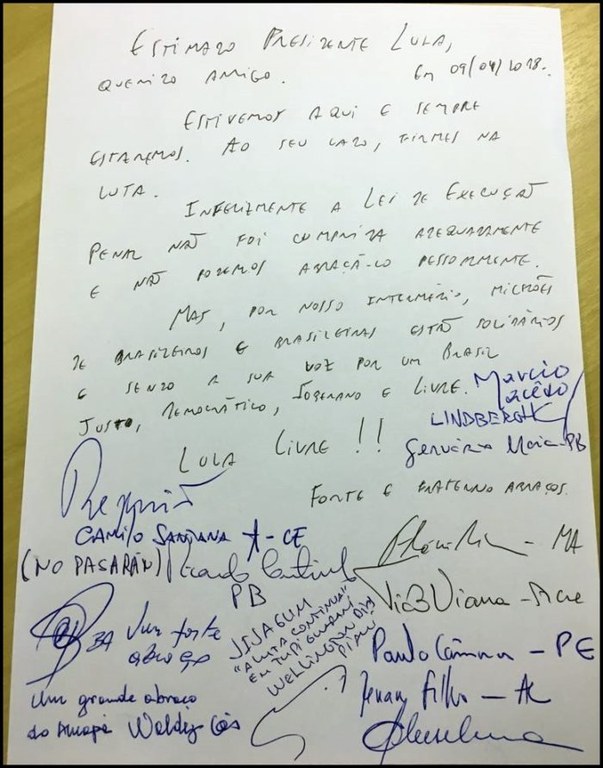 ESTIMADO PRESIDENTE LULA,
QUERIDO AMIGO. EM 09/04/2018.
ESTIVEMOS AQUI E SEMPRE
ESTAREMOS. AO SEU LADO, FIRMES NA
LUTA.
INFELIZMENTE A LEI DE EXECUÇÃO
PENAL NÃO FOI CUMPRIDA ADEQUADAMENTE
E NÃO PODEMOS ABRAÇÁ-LO PESSOALMENTE.
MAS, POR NOSSO INTERMÉDIO, MILHÕES
DE BRASILEIROS E BRASILEIRAS ESTÃO SOLIDÁRIOS
E SENDO A SUA VOZ POR UM BRASIL
JUSTO, DEMOCRÁTICO, SOBERANO E LIVRE.
Marcio Macêdo
LINDBERGH
Gervásio Maia-PB
LULA LIVRE !!
FORTE E FRATERNO ABRAÇOS.
Requião
CAMILO SANTANA - CE
(NO PASARÁN) Ricardo Coutinho
PB
Flávio Dino - MA
Tião Viana - Acre
BA Um forte
abraço
JIJAGUM
"A LUTA CONTINUA"
EM TUPI GUARANI
WELLINGTON DIAS
PIAUÍ
Paulo Câmara - PE
Um grande abraço
do Amapá Waldez Góes
Renan Filho - AL